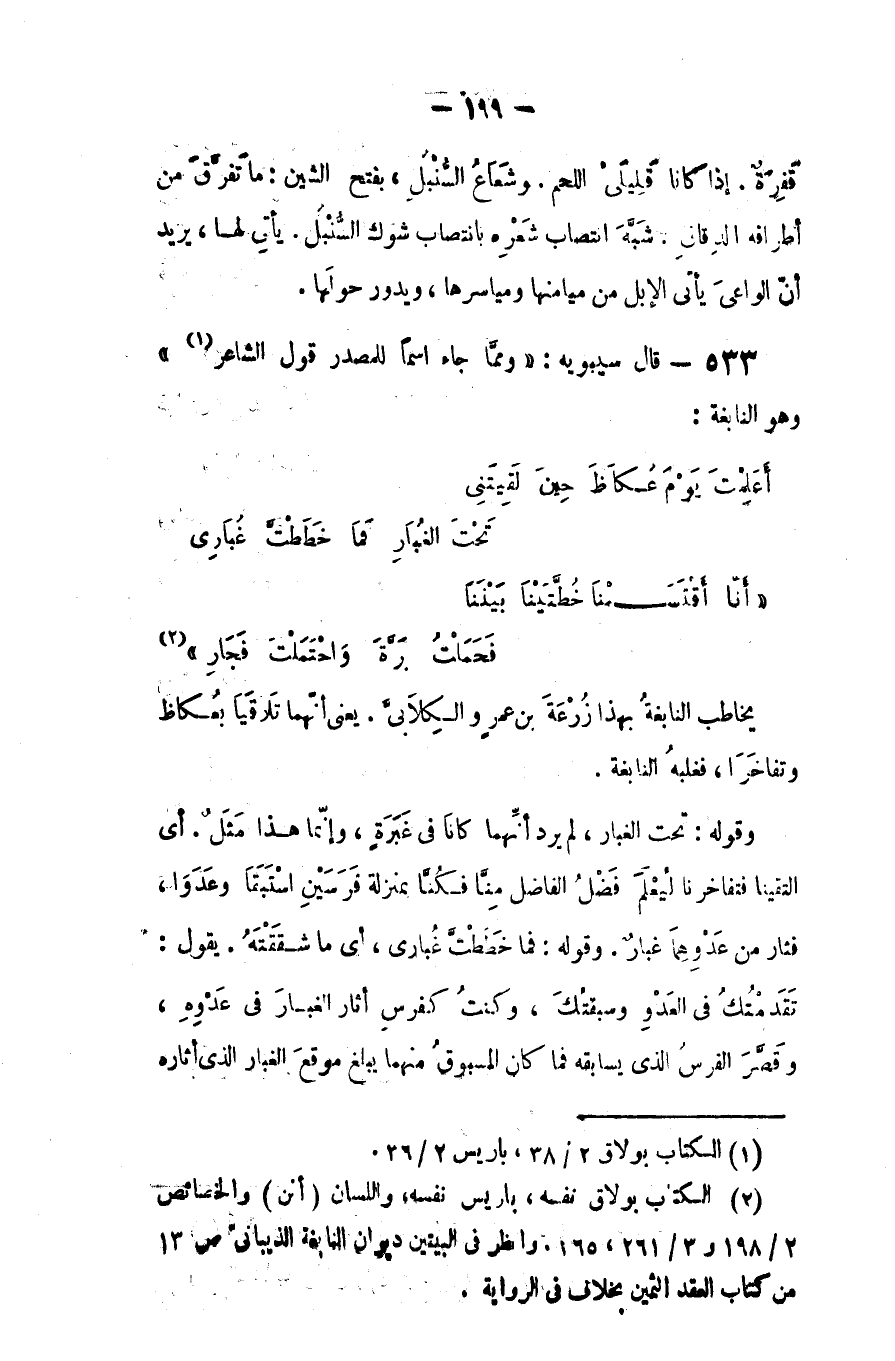 — ١٩٩ —
قَفِرَةٌ. إذا كانا قَلِيلَىْ اللحم. وشَعَاعُ السُّنْبُلِ ، بفتح الشين : ما تَفرَّقَ من
أطرافه الدقاق . شبَّهَ انتصاب شَعْرِه بانتصاب شوك السُّنْبُل. يأتي لهـا ، يريد
أنّ الراعىَ يأتى الإبل من ميامنها ومياسرها ، ويدور حولَها .
٥٣٣ — قال سيبويه : « وممَّا جاء اسمًا للمصدر قول الشاعر (١) »
وهو النابغة :
أَعَلِمْتَ يَوْمَ عُـكاَظَ حِينَ لَقِيتَنِى
تَحْتَ الغُبَارِ فَمَا خَطَطْتَّ غُبَارِى
« أَنَّا أَقْتَسَـــمْنَا خُطَّتَيْنَا بَيْنَنَا
فَحَمَلْتُ بَرَّةَ وَاحْتَمَلْتَ فَجَارِ » (٢)
يخاطب النابغةُ بهذا زُرْعَةَ بن عمرٍو الـكِلاَبىَّ . يعنى أنّهما تَلاَقَيَا بعُـكاظ
وتفاخَرَا ، فغلبهُ النابغة .
وقوله : تحت الغبار ، لم يرد أنَّهما كاناَ فى غَبَرَةٍ ، وإنَّما هـذا مَثَلٌ. أى
التقينا فتفاخرنا لُيعْلَمَ فَضْلُ الفاضل مِنَّا فـكُنَّا بمنزلة فَرَسَيْنِ اسْتَبَقَا وعَدَوَا ،
فثار من عَدْوِهِمَا غبارٌ. وقوله : فما خَطَطْتَّ غُبارى ، أى ما شـقَقْتَهُ . يقول :
تَقَدمْتُكُ فى العَدْوِ وسبقتُكَ ، وكنتُ كفرسٍ أثار الغبـارَ فى عَدْوِهِ ،
وقَصَّرَ الفرسُ الذى يسابقه فما كان المسبوقُ منهما يبلغ موقعَ الغبار الذى أثاره
(١) الـكتاب بولاق ٢ / ٣٨ ، باريس ٢ / ٣٦ .
(٢) الـكتاب بولاق نفسه ، باريس نفسه، واللسان ( أنن ) والخصائص
٢ / ١٩٨ و ٣ / ٢٦١ ، ١٦٥ . وانظر فى البيتين ديوان النابغة الذيبانىّ ص ١٣
من كتاب العقد الثمين بخلاف فى الرواية .